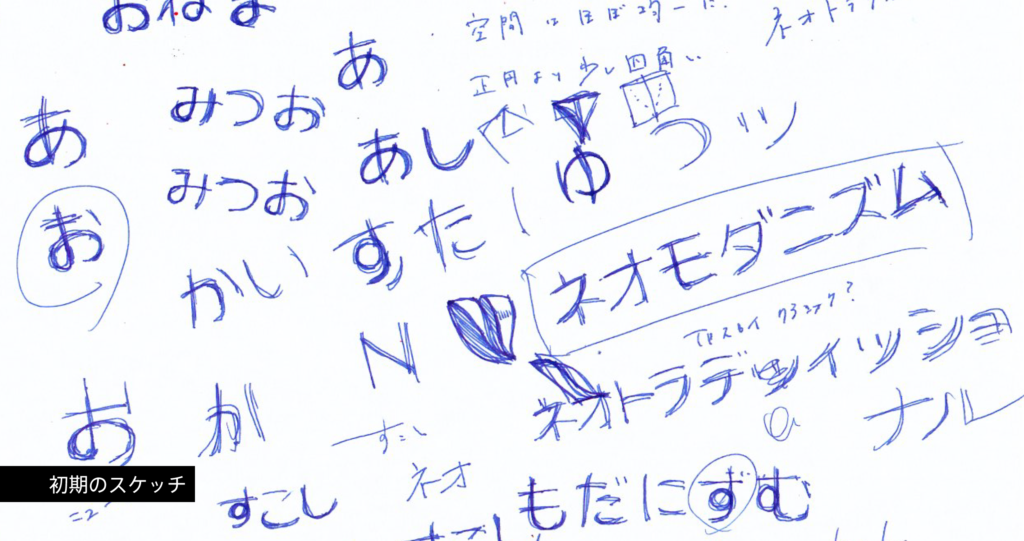 おねま
空間はほぼ均一に
ネオトラ
あ
正円より少し四角い
みつお
あ
あし
つ
ツ
ゆ
みつお
お
すたー
かい
ネオモダニズム
N
ネオトラディッショ
ナル
お
か
すこし
ネオ
初期のスケッチ
すこし
もだにずむ